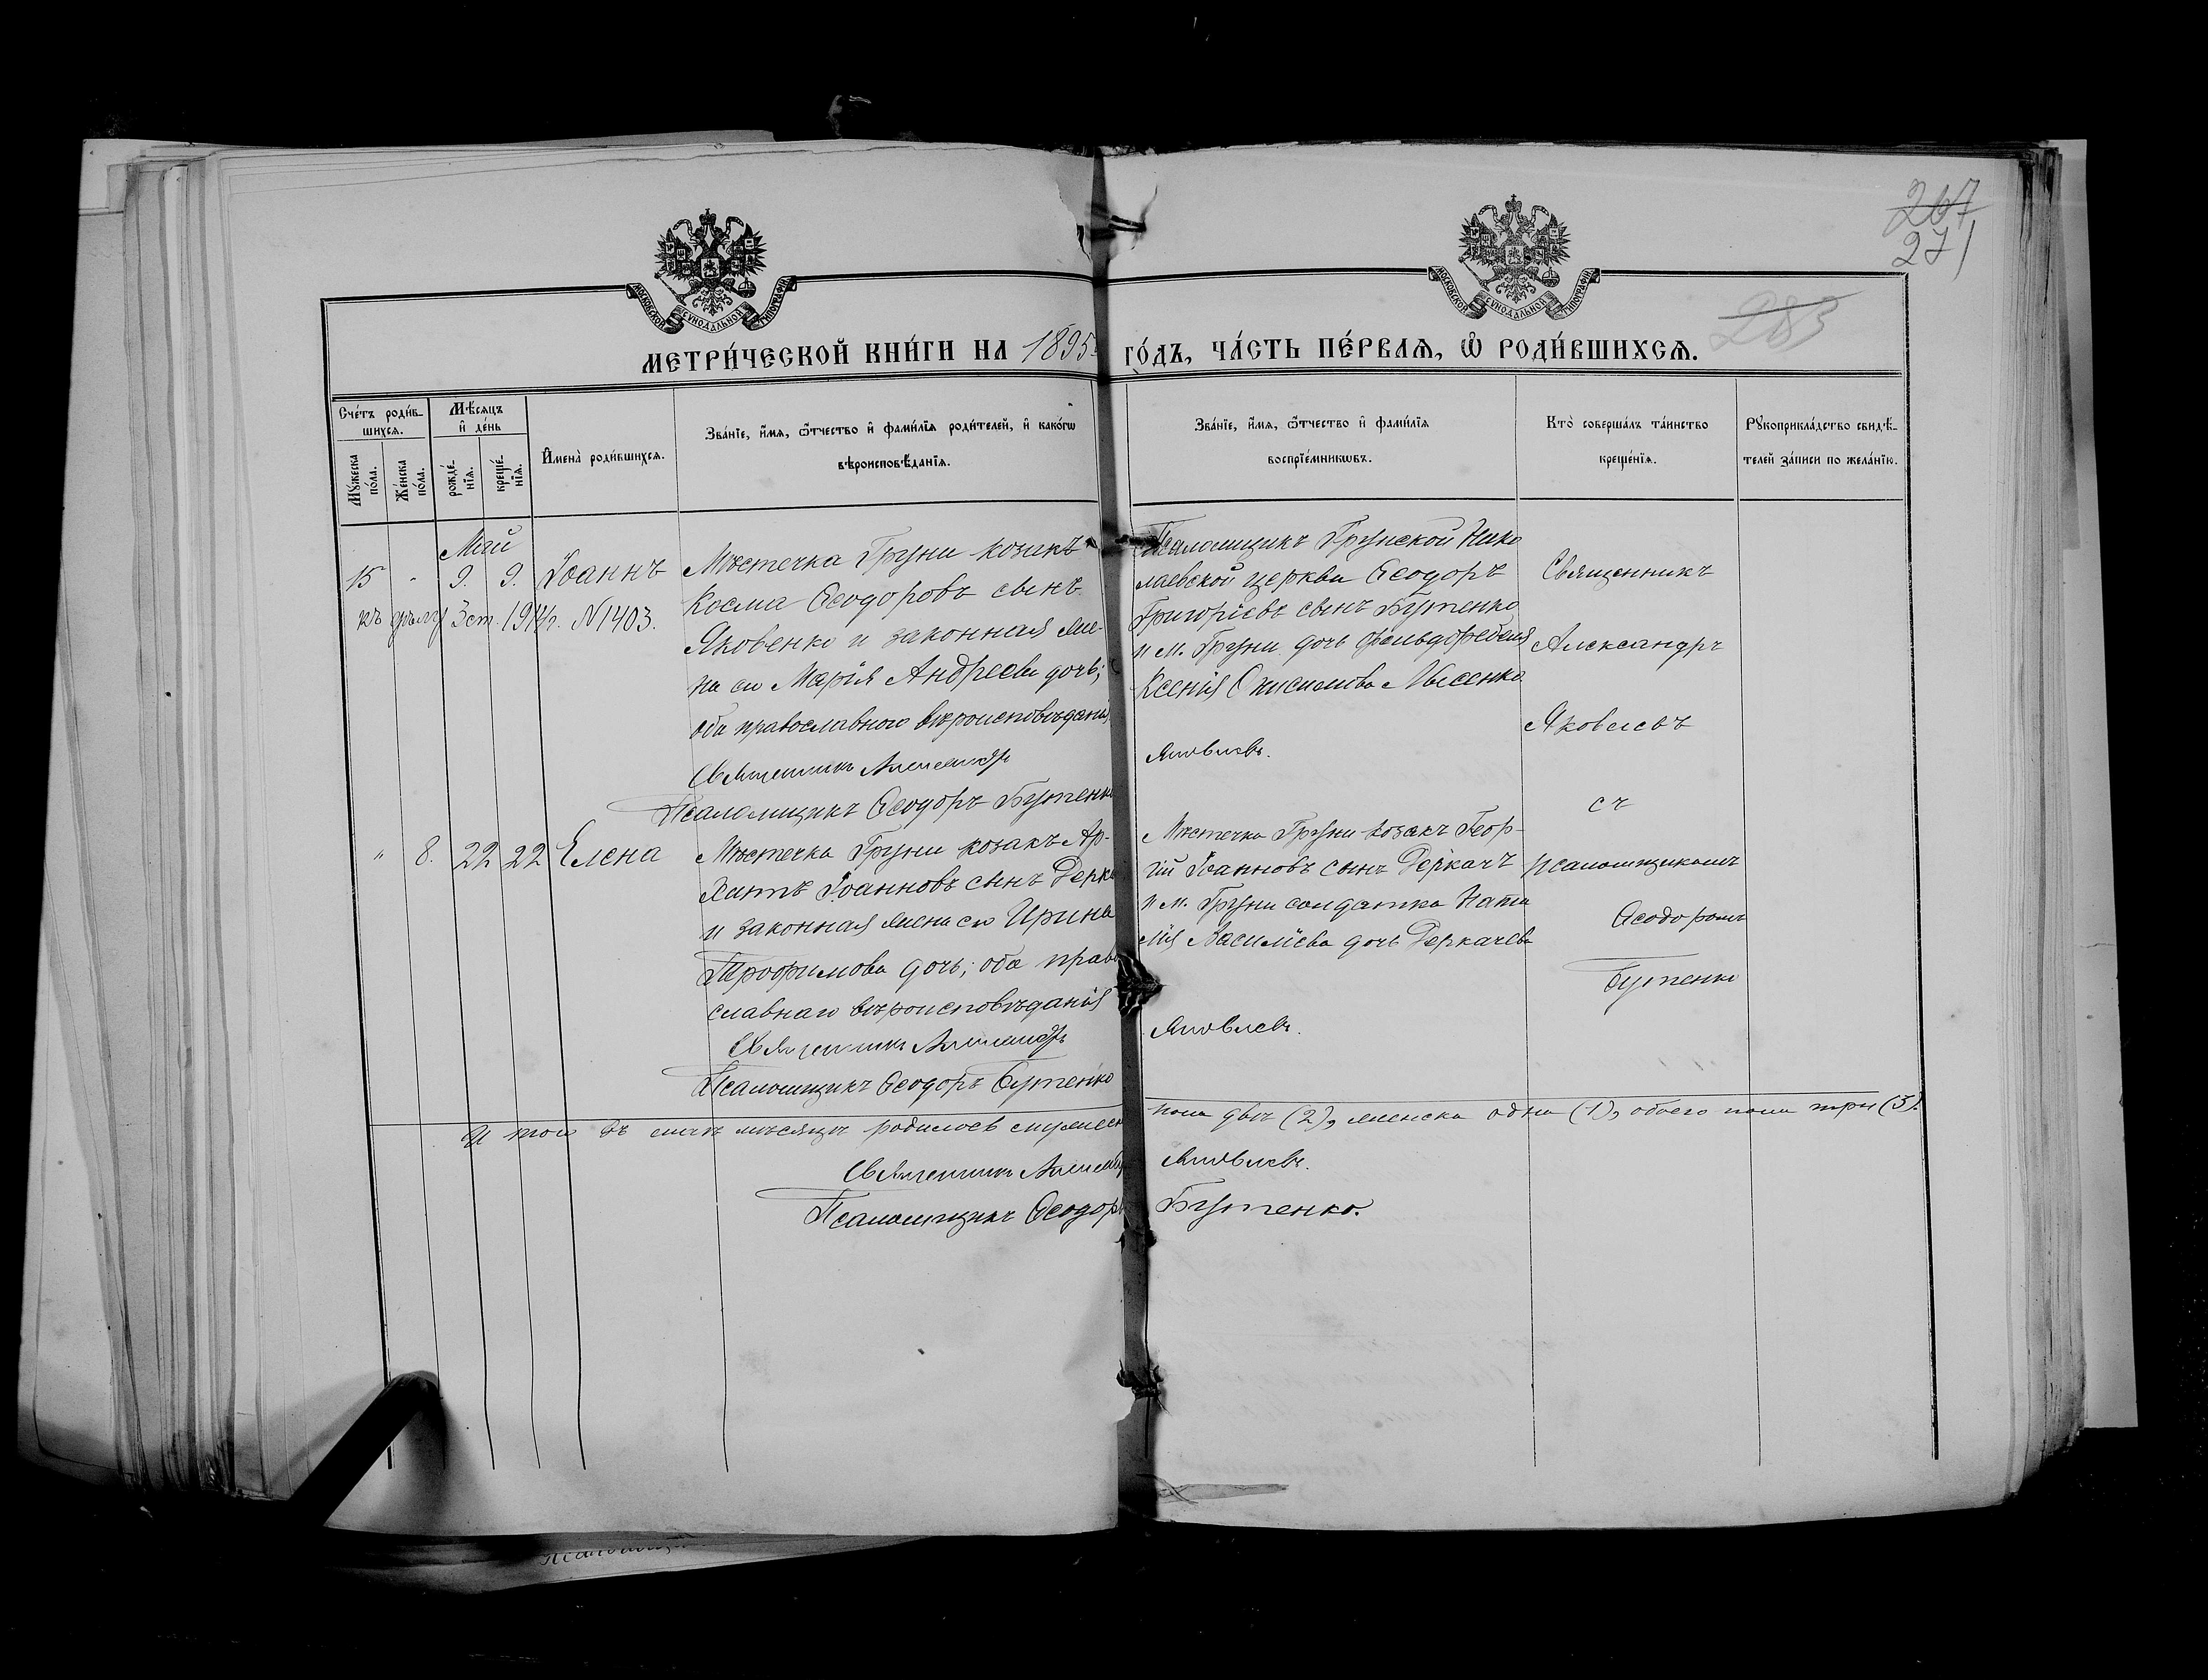 267
271
283
МОСКОВСКОЙ СѴНОДАЛЬНОЙ ТИПОГРАФІИ
МОСКОВСКОЙ СѴНОДАЛЬНОЙ ТИПОГРАФІИ
МЕТРИ́ЧЕСКОЙ КНИ́ГИ НА 1895 ГО́ДЪ, ЧА́СТЬ ПЕ́РВАЯ, Ѽ РОДИ́ВШИХСѦ.
Сче́тъ роди́в-
шихсѧ.
Му́жеска по́ла.
Же́нска по́ла.
Мѣ́сѧцъ
и҆ де́нь
рожде́-
нїѧ.
креще́-
нїѧ.
И҆мена̀ роди́вшихсѧ.
Зва́нїе, и҆́мѧ, ѻ҆́тчество и҆ фами́лїѧ роди́телей, и҆ како́гѡ
вѣроисповѣ́данїѧ.
Зва́нїе, и҆́мѧ, ѻ҆́тчество и҆ фами́лїѧ
воспрїе́мникѡвъ.
Кто̀ соверша́лъ та́инство
креще́нїѧ.
Рꙋкоприкла́дство свидѣ́-
телей за́писи по жела́нїю.
Май
15 - 9. 9. Іоаннъ
къ дѣлу 3 ст. 1914 г. N 1403.
Мѣстечка Груни козакъ
Косма Ѳеодоровъ сынъ
Яковенко и законная же-
на его Марія Андреева дочь;
оба православного вѣроисповѣданія
Священникъ Александръ
Псаломщикъ Ѳеодоръ Бутенко
Псаломщикъ Грунской Нико
лаевской церкви Ѳеодоръ
Григоріевъ сынъ Бутенко
и м. Груни дочь фельдфебеля
Ксенія Онисимова Лысенко
Яковлевъ.
Священникъ
Александръ
Яковлевъ
съ
псаломщикомъ
Ѳеодоромъ
Бутенко
" 8. 22 22 Елена
Мѣстечка Груни козакъ Ар-
Іоанновъ сынъ Дерка
и законная жена его Ирина
Трофимова дочь; оба право
славнаго вѣроисповѣданія
Священникъ Александръ
Псаломщикъ Ѳеодоръ Бутенко
Мѣстечка Груни козакъ Геор-
гій Іоанновъ сынъ Деркачъ
и м. Груни солдатка Ната
лія Василіева дочь Деркачева
Яковлевъ.
Итого въ маѣ мѣсяцѣ родилось мужеск пола два (2), женска одна (1), обоего пола три (3).
Священникъ Александръ Яковлевъ.
Псаломщикъ Ѳеодоръ Бутенко.